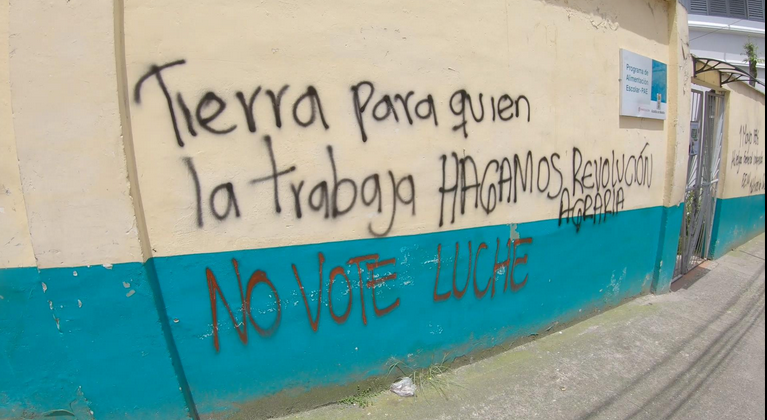 Tierra para quien
la trabaja HAGAMOS REVOLUCIÓN
AGRARIA
NO VOTE LUCHE
Programa de
Alimentación
Escolar-PAE